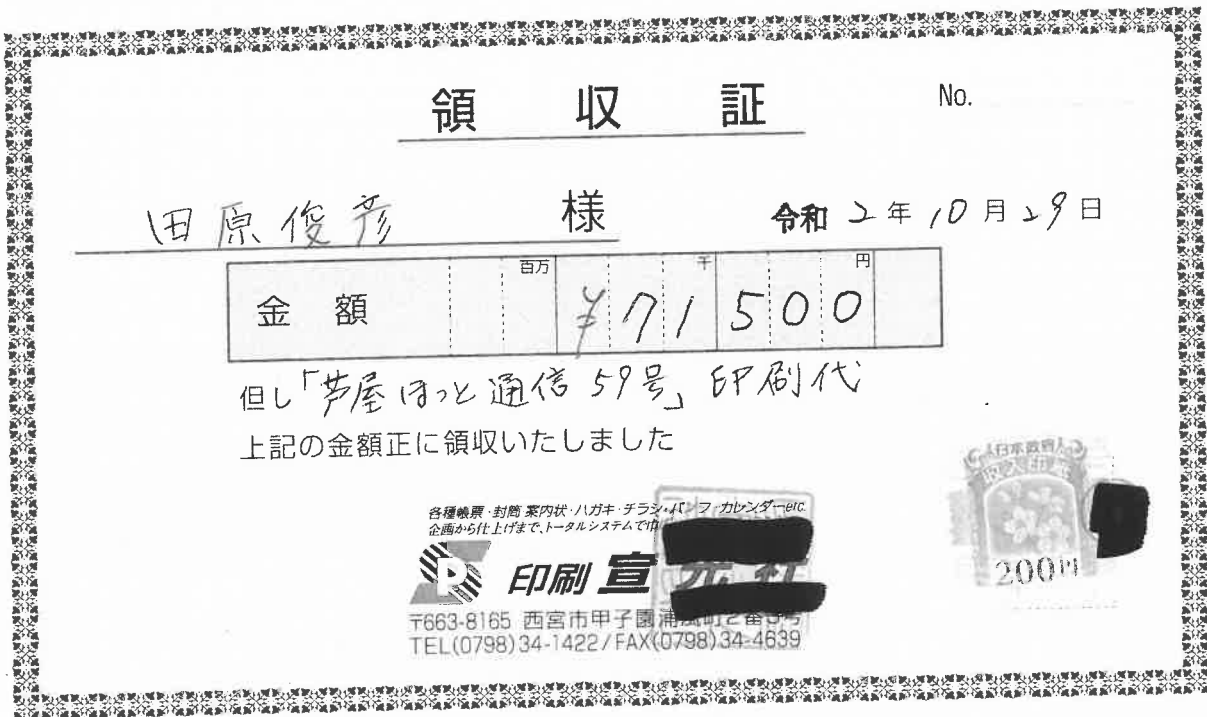 領収証
No.
田原俊彦 様
令和 2年10月29日
百万 千 円
金額 ¥71500
但し「芦屋ほっと通信59号」印刷代
上記の金額正に領収いたしました
日本政府
収入印紙
200円
各種帳票・封筒・案内状・ハガキ・チラシ・パンフ・カレンダーetc.
企画から仕上げまで、トータルシステムで
印刷 宣光社
〒663-8165 西宮市甲子園浦風町2番5号
TEL(0798)34-1422/FAX(0798)34-4639